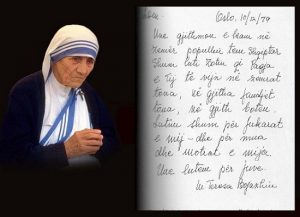 Oslo. 10/12/79
Une gjithmon e kam në
zemër popullin tem Shqiptar
Shum luti Zotin qi Paqja
e Tij të vijn në zemrat
tona, në gjitha familjet
tona, në gjith botën.
Lutëm shum për fukarat
e mij – dhe për mua
dhe motrat e mija.
Une lutem për juve.
M Teresa Bojaxhiu